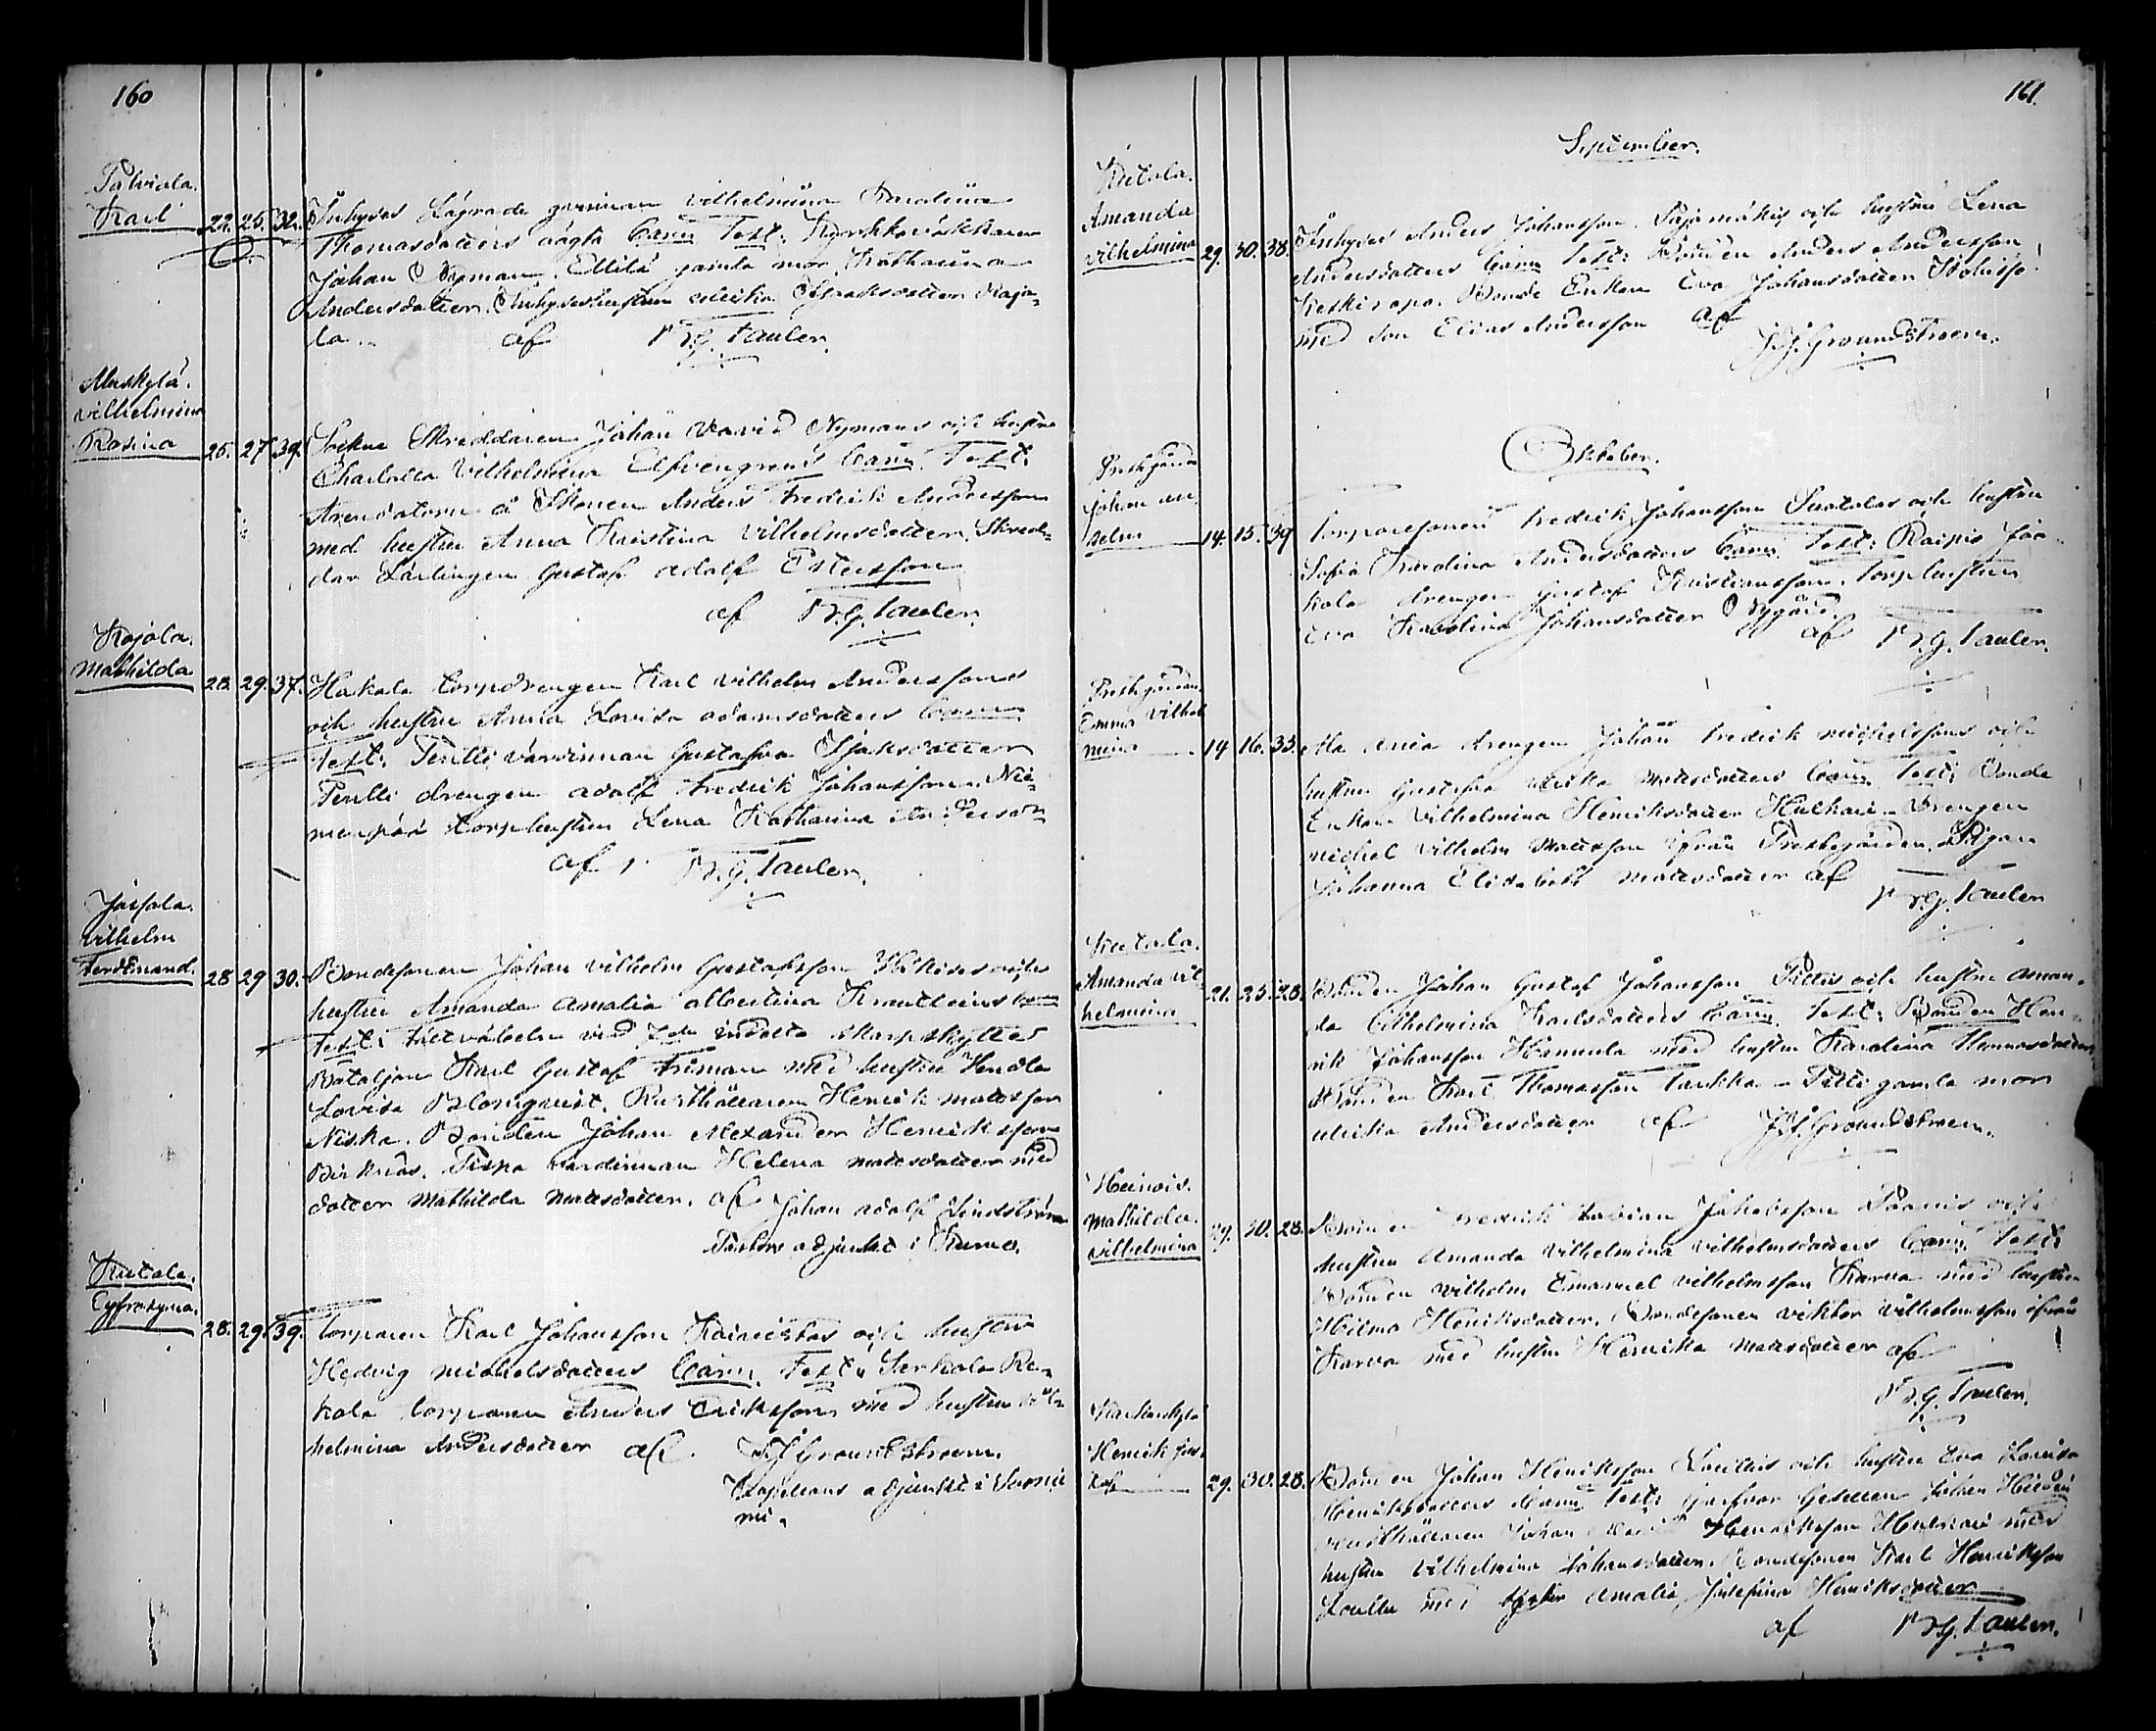 160
Talviala.
Karl 22. 25. 32. Inhyses Lägrade qvinnan Vilhelmina Karolina
Thomasdotters oägta barn Test: Kyrkkarlskarn
Johan Nyman. Ellilä gamla mor Katharina
Andersdotter. Inhyseshustrun Ulrika Isaksdotter Kajo-
la. af B.G. Taulér.
Anskylä.
Vilhelmina
Rosina 25. 27. 39. Sockne Skreddaren Johan David Nymans och hustru
Charlotta Vilhelmina Elfvengrens barn Test:
Arendatorn å Anders Fredrik Andersson
med hustru Anna Kristina Vilhelmsdotter. Skred-
dar Lärlingen Gustaf Adolf Estersson
af B.G. Taulér.
Kojola.
Mathilda 28. 29. 37. Hakala torpdrengen Karl Vilhelm Anderssons
och hustru Anna Lovisa Adamsdotters barn
Test: Pentti värdinnan Gustafva Isaksdotter
Pentti drengen Adolf Fredrik Johansson. Nie-
menpää torphustrun Lena Katharina Andersd:r
af B.G. Taulér.
Jaofala.
Vilhelm
Ferdinand. 28 29 30. Bondesonen Johan Vilhelm Gustafsson och
hustru Amanda Amalia Albertina barn
Test: Fältväbeln vid 7de indelta skarpskytte
Bataljon Karl Gustaf Friman med hustru Hendla
Lovisa Blomqvist. Rusthållaren Henrik Mattsson
Niska. Bonden Johan Alexander Henriksson
Pirknäs. värdinnan Helena Mattsdotter med
dotter Mathilda Mattsdotter. af Johan Adolf Lindström
Pastors adjunkt i Kumo.
Kutala.
Eyfrosyna. 28. 29. 39. Torparen Karl Johansson och hustru
Hedvig Michelsdotters barn. Test: Serkola Re-
kola torparen Anders Eriksson med hustru Vil-
helmina Andersdotter af J.J. Groundstroem.
Kapellans adjunkt i Suonie
mi.
161.
September.
Kutala.
Amanda
Vilhelmina 29. 30. 38. Inhyses Anders Johansson Pajamäkis och hustru Lena
Andersdotters barn Test: Bonden Anders Andersson
Keskiropa. Bonde Enkan Eva Johansdotter
med son Elias Andersson af
J.J. Groundstroem.
Oktober.
Prestgården
Johan An-
selm 14. 15. 39 Torparesonen Fredrik Johansson Suotalas och hustru
Sofia Karolina Andersdotters barn. Test: Raipis Jaa-
kola drengen Gustaf Kristiansson. Torphustrun
Eva Karolina Johansdotter Nygård.
af B.G. Taulér.
Prestgården.
Emma Vilhel
mina 14 16. 33. Ala Ania drengen Johan Fredrik Michelssons och
hustru Gustafva Ulrika Mattsdotters barn Test: Bonde
Enkan Vilhelmina Henriksdotter Huhtari. Drengen
Michel Vilhelm Mattsson ifrån Prestegården. Pigan
Johanna Elisabeth Mattsdotter af
B.G. Taulér
Kutala.
Amanda Vil
helmina 21. 25. 28. Bonden Johan Gustaf Johansson Pittis och hustru Aman-
da Vilhelmina Karlsdotters barn. Test: Bonden Hen-
rik Johansson Hannula med hustru Karolina Thomasdotter
Bonden Karl Thomasson Laukka. Pitti gamla mor
Ulrika Andersdotter af J.J. Groundstroem.
Heinois.
Mathilda
Vilhelmina 29. 30. 28. Bonden Fredrik Fabian Johansson Paavis och
hustru Amanda Vilhelmina Vilhelmsdotters barn. Test:
Bonden Vilhelm Emanuel Vilhelmsson Karna med hustru
Hilma Henriksdotter. Bondesonen Viktor Vilhelmsson ifrån
Karna med hustru Henrika Mattsdotter af
B.G. Taulér.
Karkuskylä
Henrik Gus-
taf 29. 30. 28. Bonden Johan Henriksson Loullis och hustru Eva Lovisa
Henriksdotters barn Test: Garfvar Gesällen Johan Hidén
Rusthållaren Johan Henriksson med
hustru Vilhelmina Johansdotter. Bondesonen Karl Henriksson
Loulla med syster Amalia Josefina Henriksdotter
af B.G. Taulér.